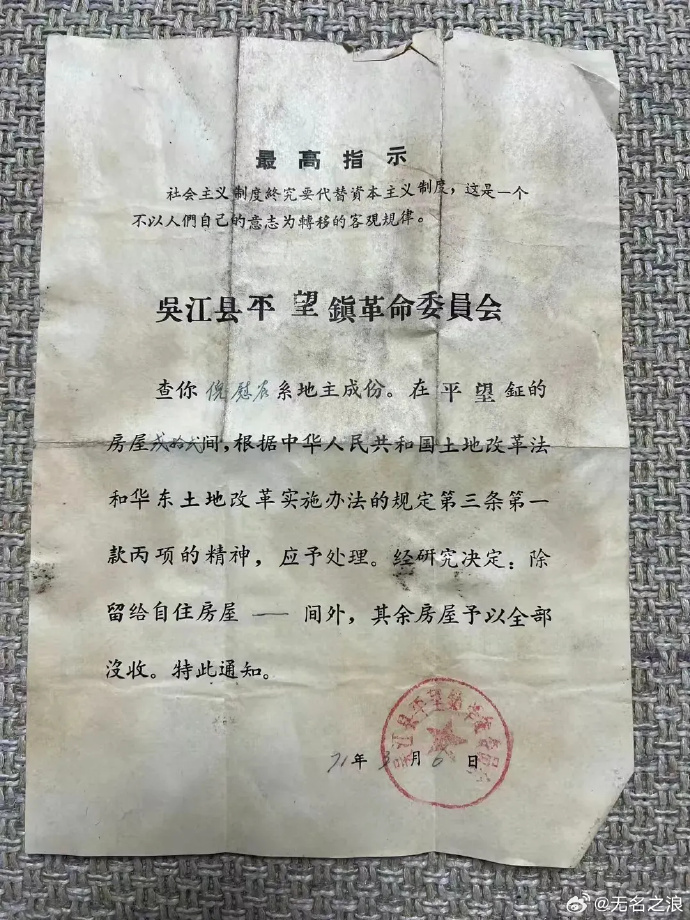 最高指示
社会主义制度終究要代替資本主义制度，这是一个
不以人們自己的意志为轉移的客观規律。
吳江县平望鎮革命委員会
查你倪慰农系地主成份。在平望鉦的
房屋弍拾弍间，根据中华人民共和国土地改革法
和华东土地改革实施办法的规定第三条第一
款丙项的精神，应予处理。经研究决定：除
留给自住房屋 — 间外，其余房屋予以全部
沒收。特此通知。
吴江县平望鎮革命委員会
71年3月6日
@无名之浪